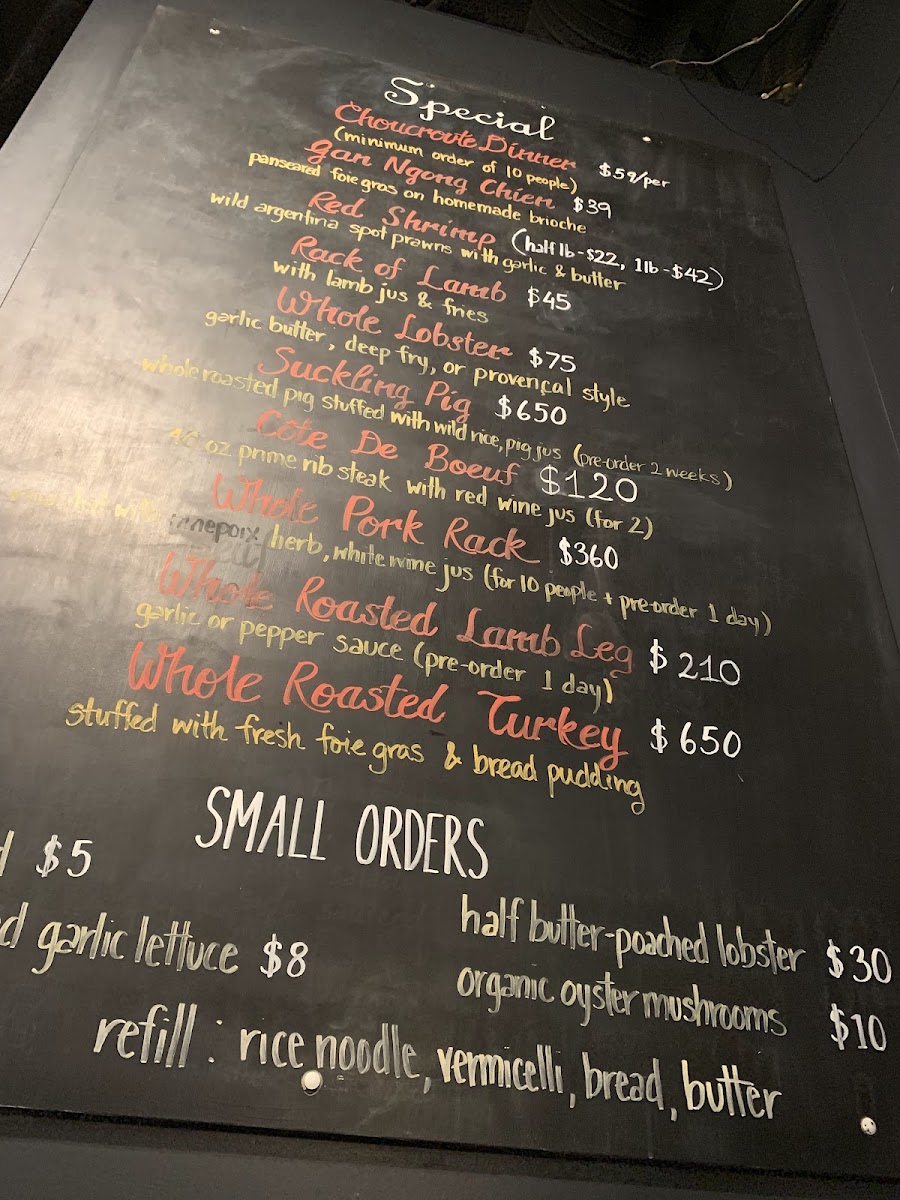 Special
Choucroute Dinner $59/per
(minimum order of 10 people)
Gan Ngong Chien $39
panseared foie gras on homemade brioche
Red Shrimp (half lb-$22, 1lb-$42)
wild argentina spot prawns with garlic & butter
Rack of Lamb $45
with lamb jus & fries
Whole Lobster $75
garlic butter, deep fry, or provençal style
Suckling Pig $650
whole roasted pig stuffed with wild rice, pig jus (pre-order 2 weeks)
Côte De Boeuf $120
oz prime rib steak with red wine jus (for 2)
Whole Pork Rack $360
with herb, white wine jus (for 10 people + pre-order 1 day)
Whole Roasted Lamb Leg $210
garlic or pepper sauce (pre-order 1 day)
Whole Roasted Turkey $650
stuffed with fresh foie gras & bread pudding
SMALL ORDERS
$5
garlic lettuce $8
half butter-poached lobster $30
organic oyster mushrooms $10
refill: rice noodle, vermicelli, bread, butter